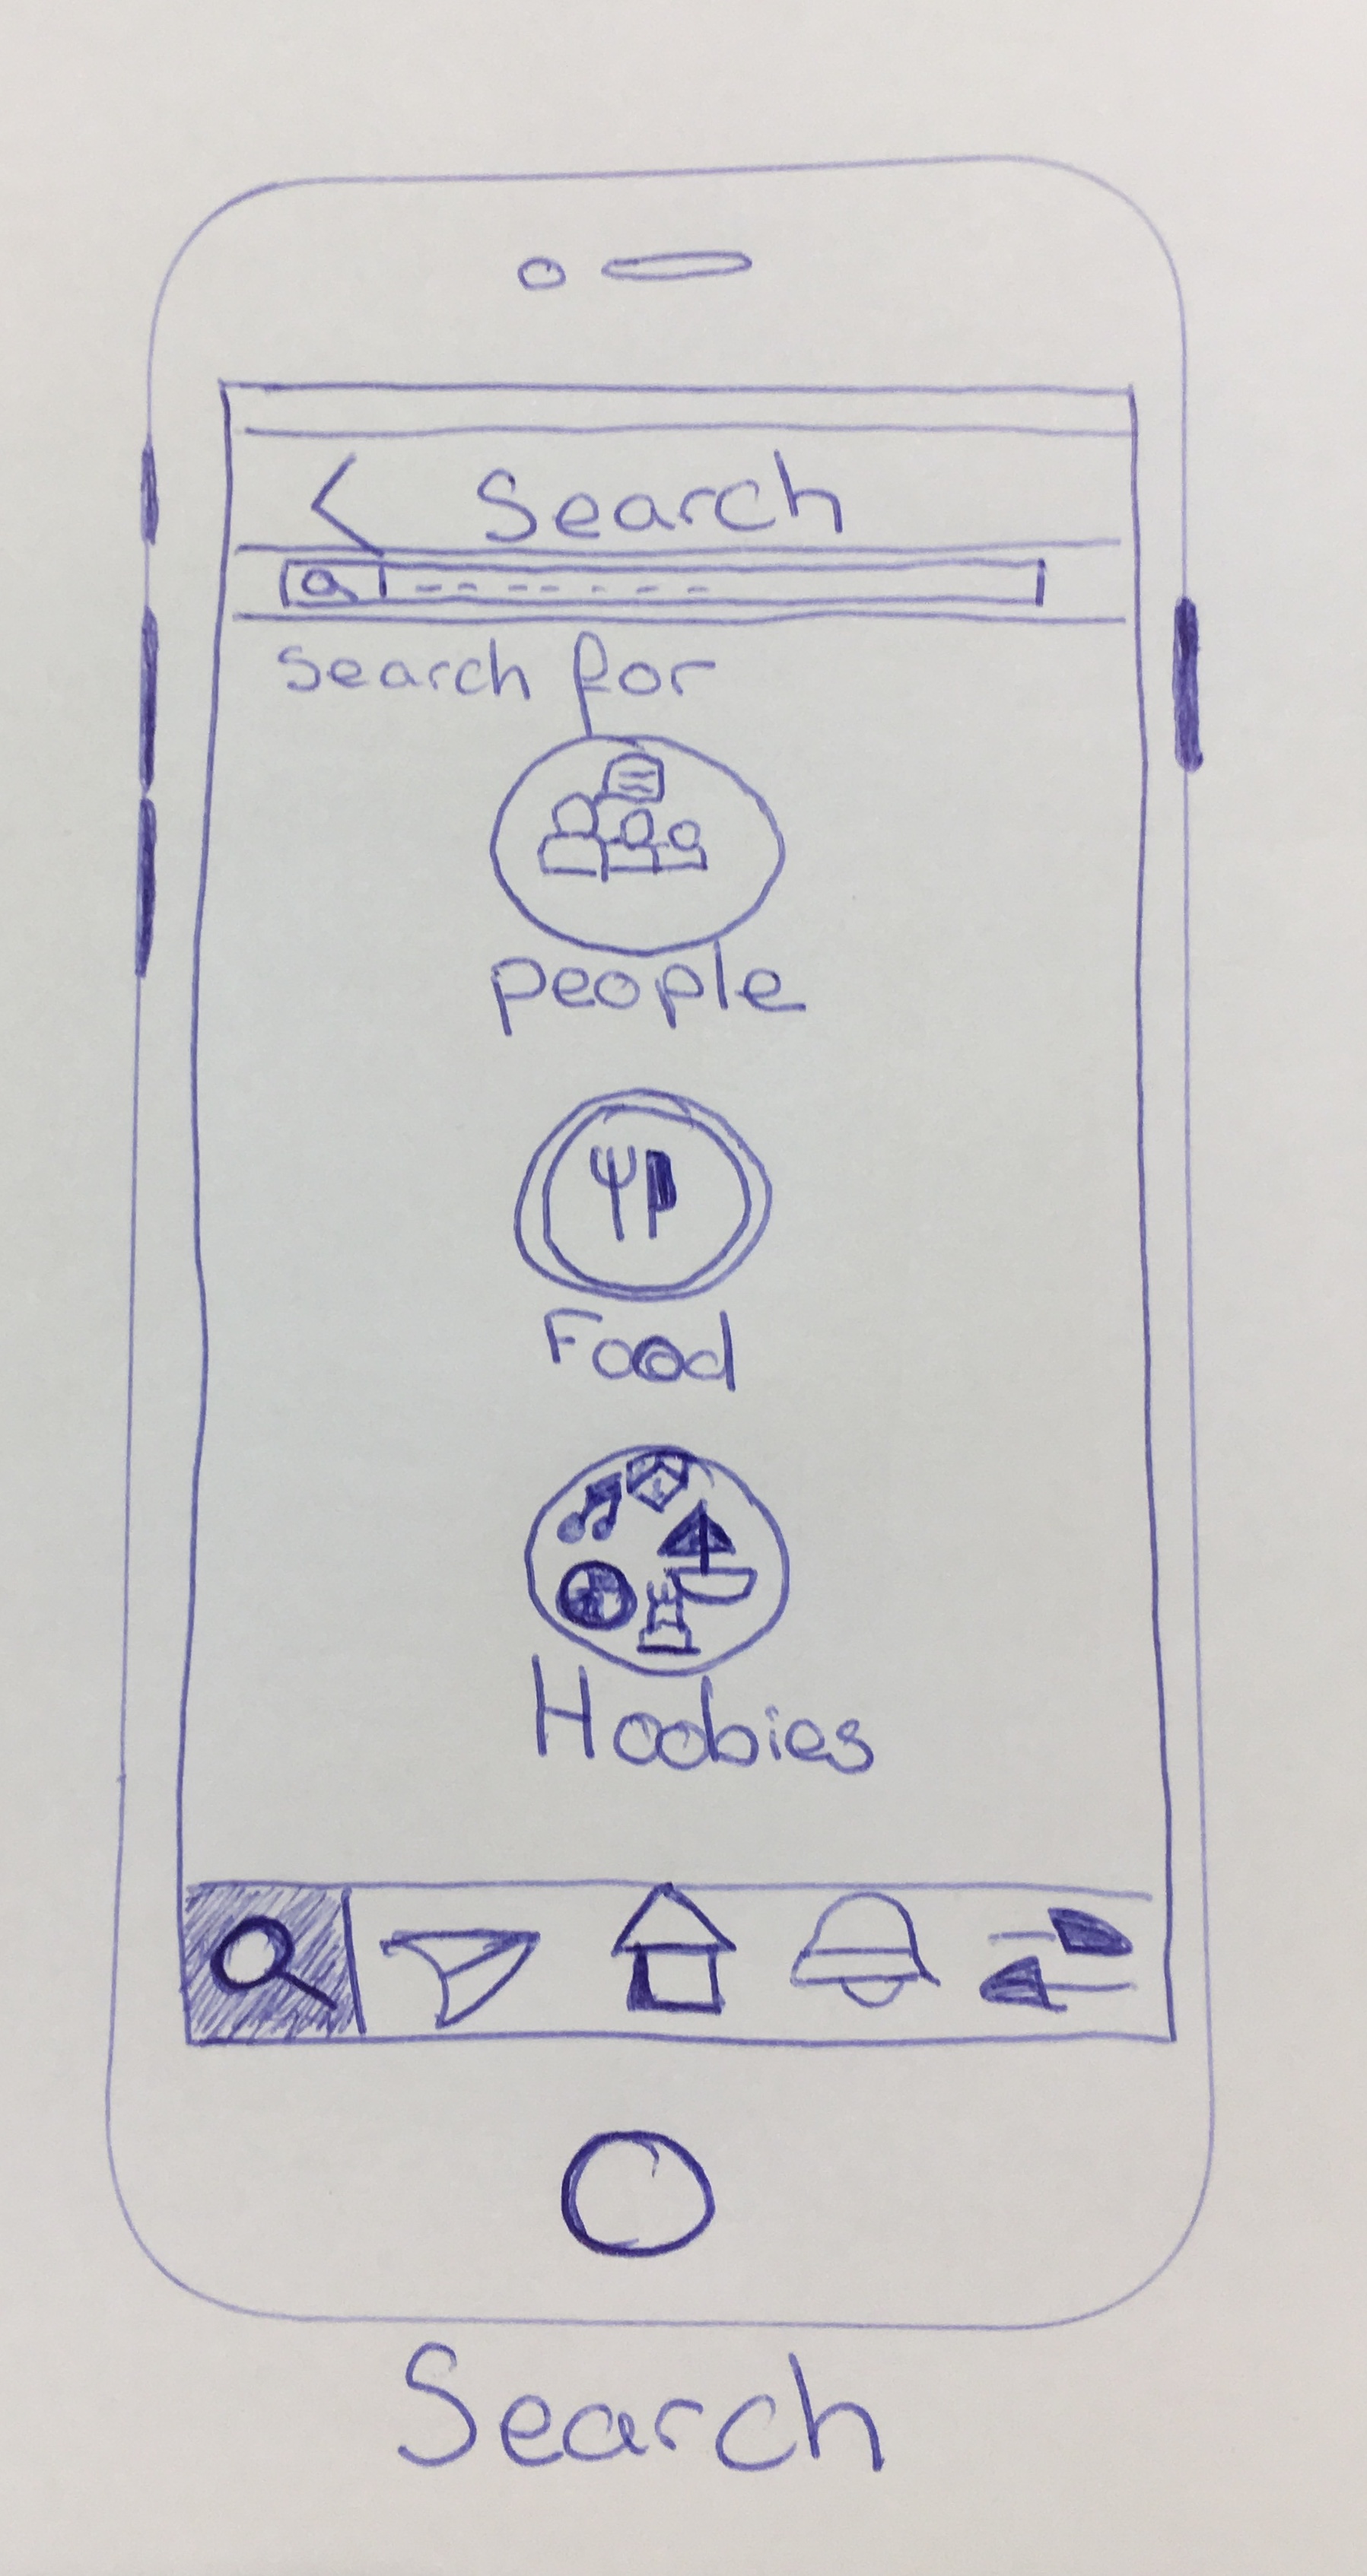 Search
search for
people
Food
Hoobies
Search